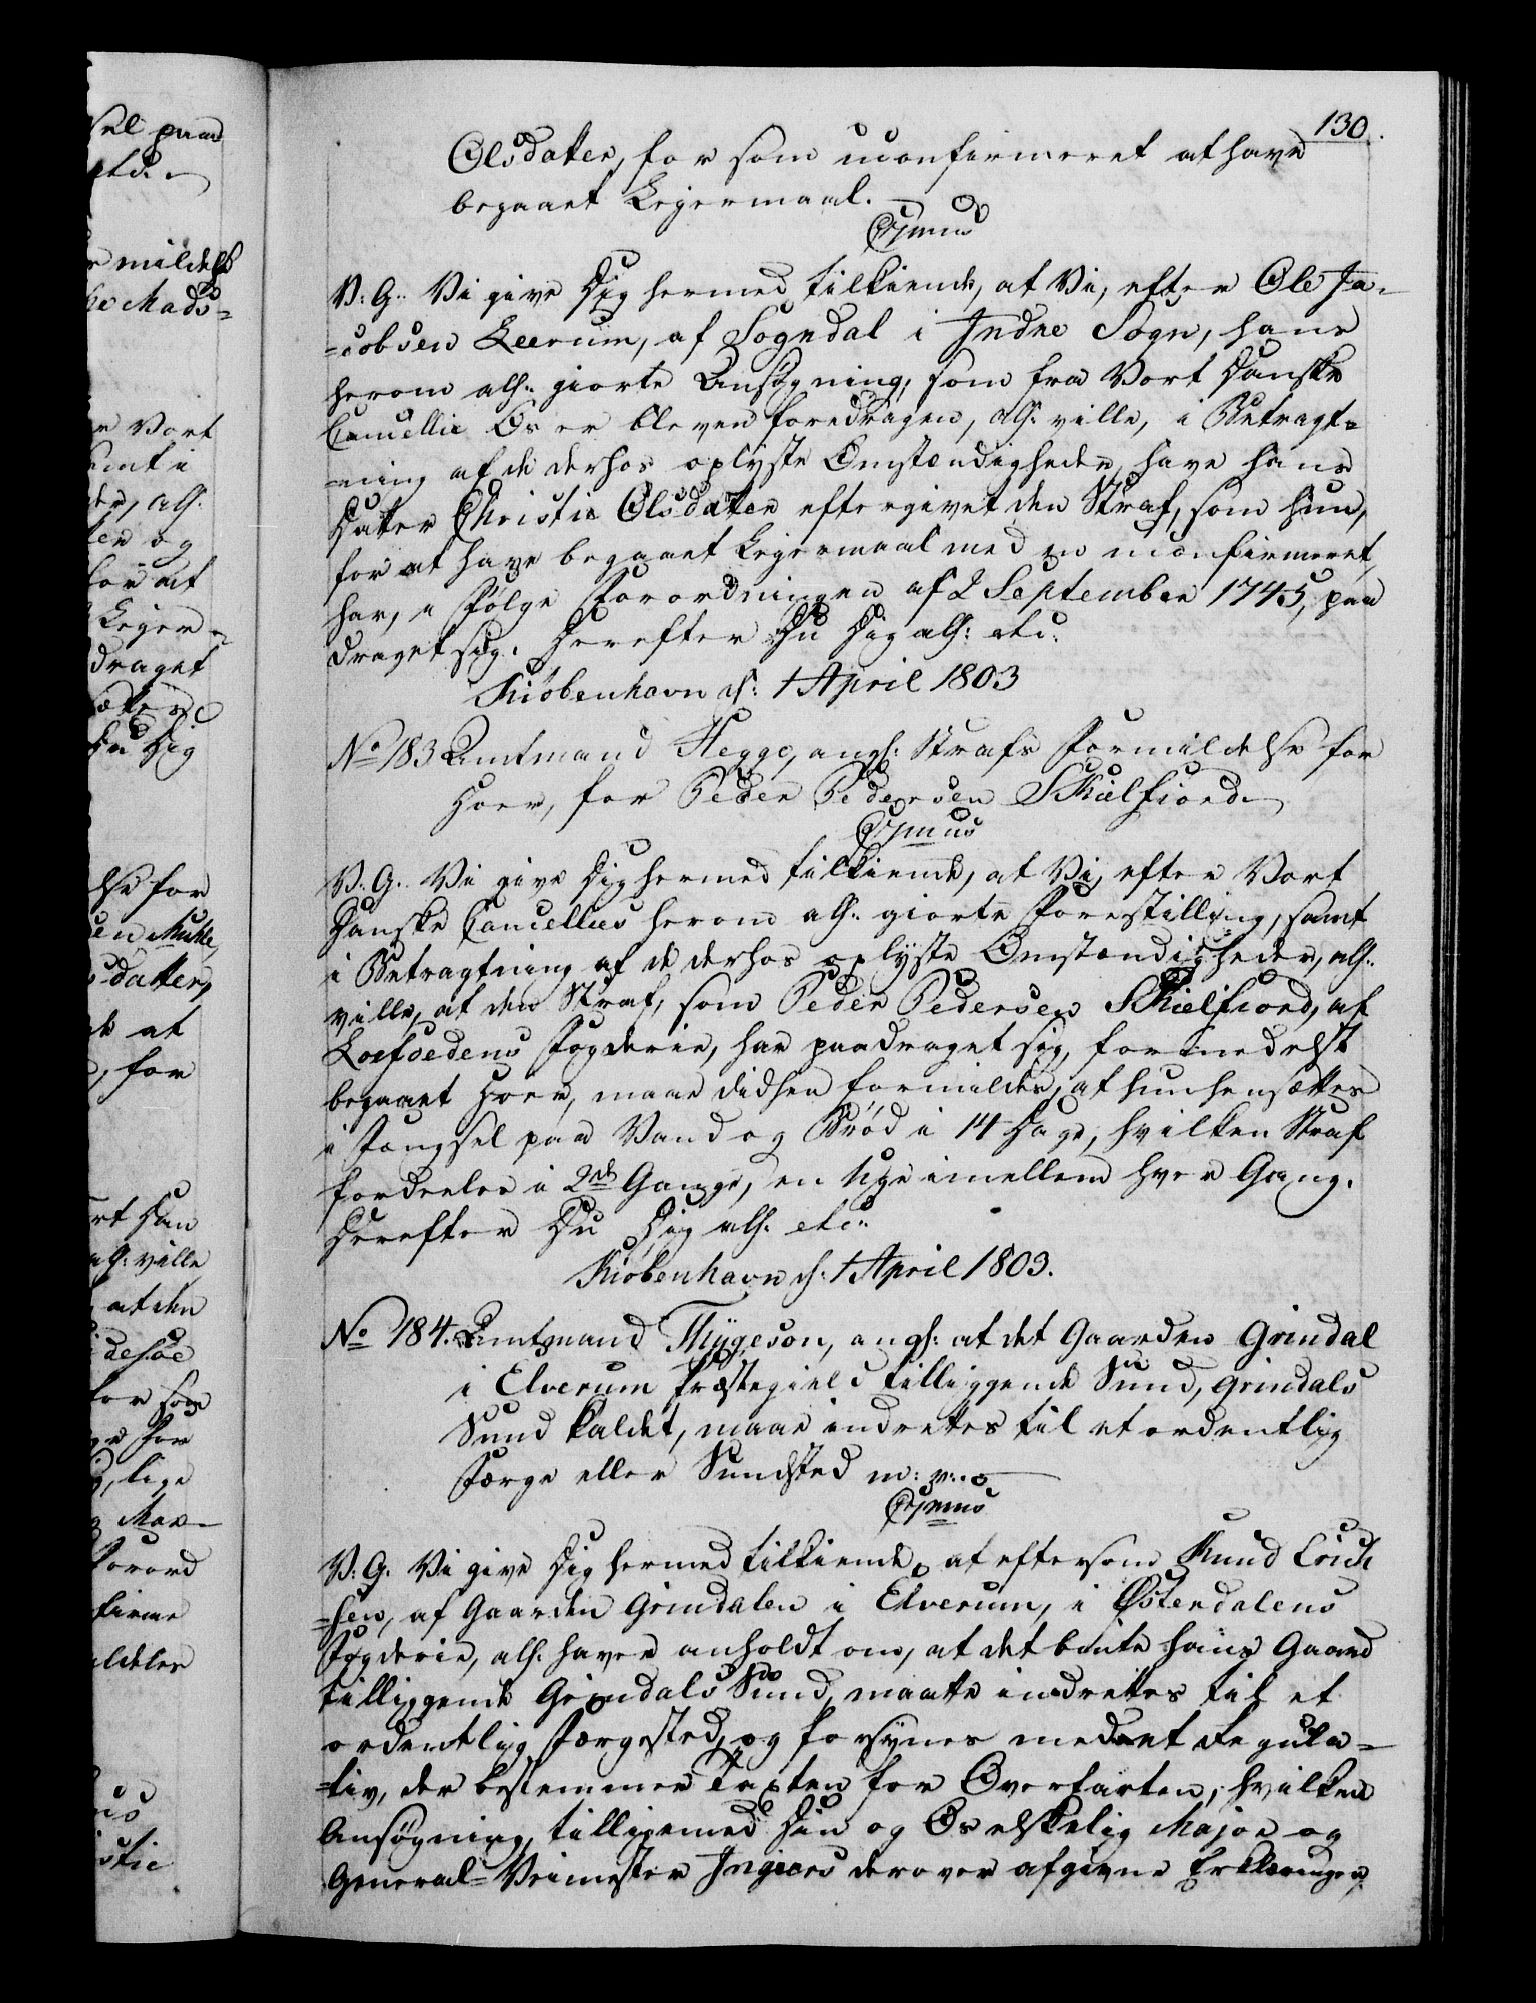 130.
Olsdatter, for som uconfirmeret at have
begaaet Leiermaal.
V: G: Vi give Dig hermed tilkiende, at Vi, efter Ole Ja-
-cobsen Leerum, af Sogndal i Indre Sogn, hans
herom alh: giorte Ansøgning, som fra Vort Danske
Cancellie Os er bleven foredragen, alh: ville, i Betragt-
-ning af de derhos oplyste Omstændigheder, have hans
Datter Christie Olsdatter eftergivet den Straf, som hun,
for at have begaaet Leiermaal med en uconfirmeret,
har, i Følge Forordningen af 2 September 1745, paa
draget sig. Herefter Du Dig alh: etc:
Kiøbenhavn d: 1 April 1803
No 183 Amtmand Hegge, angl: Strafs Formildelse for
Hoer, for Peder Pedersen Skielfiord
V: G: Vi give Dig hermed tilkiende, at Vi, efter Vort
Danske Cancellies herom alh: giorte Forestilling, samt
i Betragtning af de derhos oplyste Omstændigheder, alh:
ville, at den Straf, som Peder Pedersen Skielfiord, af
Loefoedens Fogderie, har paadraget sig, formedelst
begaaet Hoer, maae didhen formildes, at hun hensættes
i Fængsel paa Vand og Brød i 14 Dage, hvilken Straf
fordeeles i 2de Gange, en Uge imellem hver Gang.
Derefter Du Dig alh: etc:
Kiøbenhavn d: 1 April 1803.
No 184. Amtmand Thygeson, angl: at det Gaarden Grindal
i Elverum Præstegield tilliggende Sund, Grindals
Sund kaldet, maae indrettes til et ordentlig
Færge eller Sundsted m: v:
V: G: Vi give Dig hermed tilkiende, at eftersom Knud Erich
-sen, af Gaarden Grindalen i Elverum, i Østerdalens
Fogderie, alh: haver anholdt om, at det bemte hans Gaard
tilliggende Grindals Sund, maatte indrettes til et
ordentlig Færgested, og forsynes med et Regula-
-tiv, der bestemmer Taxten for Overfarten, hvilken
Ansøgning, tilligemed Din og Os elskelig Major og
General-Veimester Ingiers derover afgivne Erklæringer,